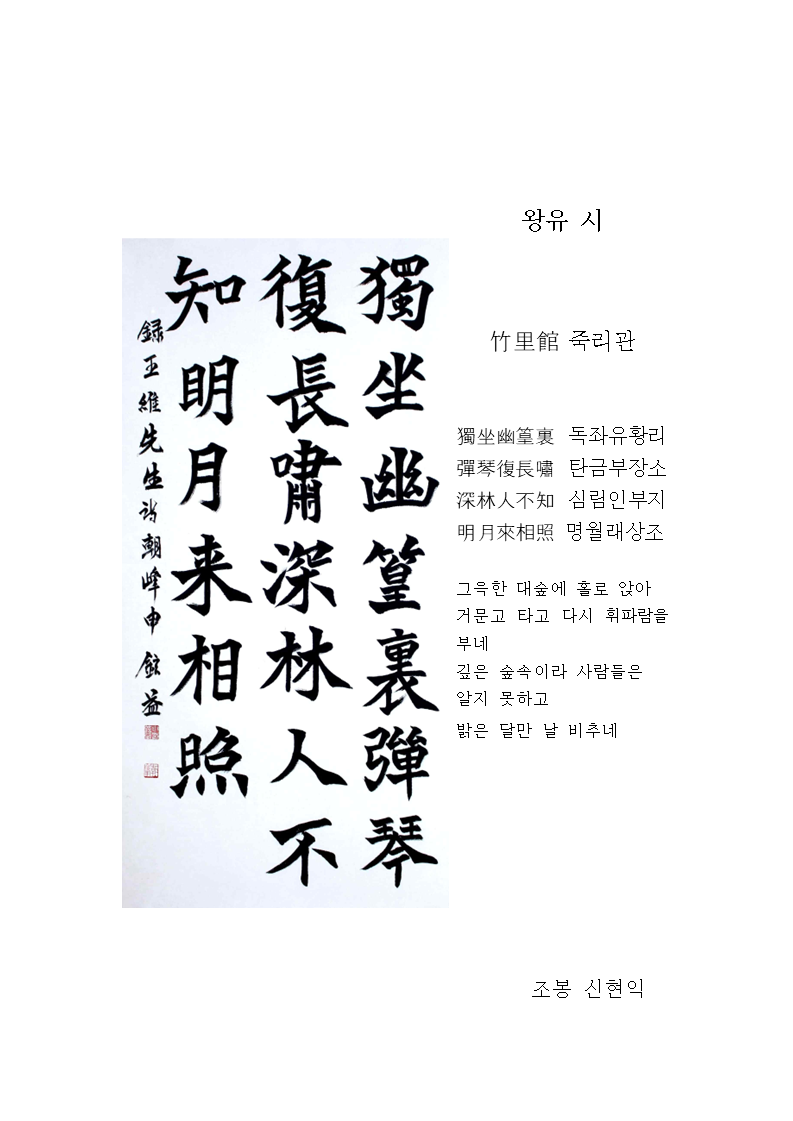 왕유 시
竹里館 죽리관
獨坐幽篁裏 독좌유황리
彈琴復長嘯 탄금부장소
深林人不知 심림인부지
明月來相照 명월래상조
그윽한 대숲에 홀로 앉아
거문고 타고 다시 휘파람을
부네
깊은 숲속이라 사람들은
알지 못하고
밝은 달만 날 비추네
獨坐幽篁裏彈琴
復長嘯深林人不
知明月来相照
録王維先生詩朝峰申鉉益
조봉 신현익